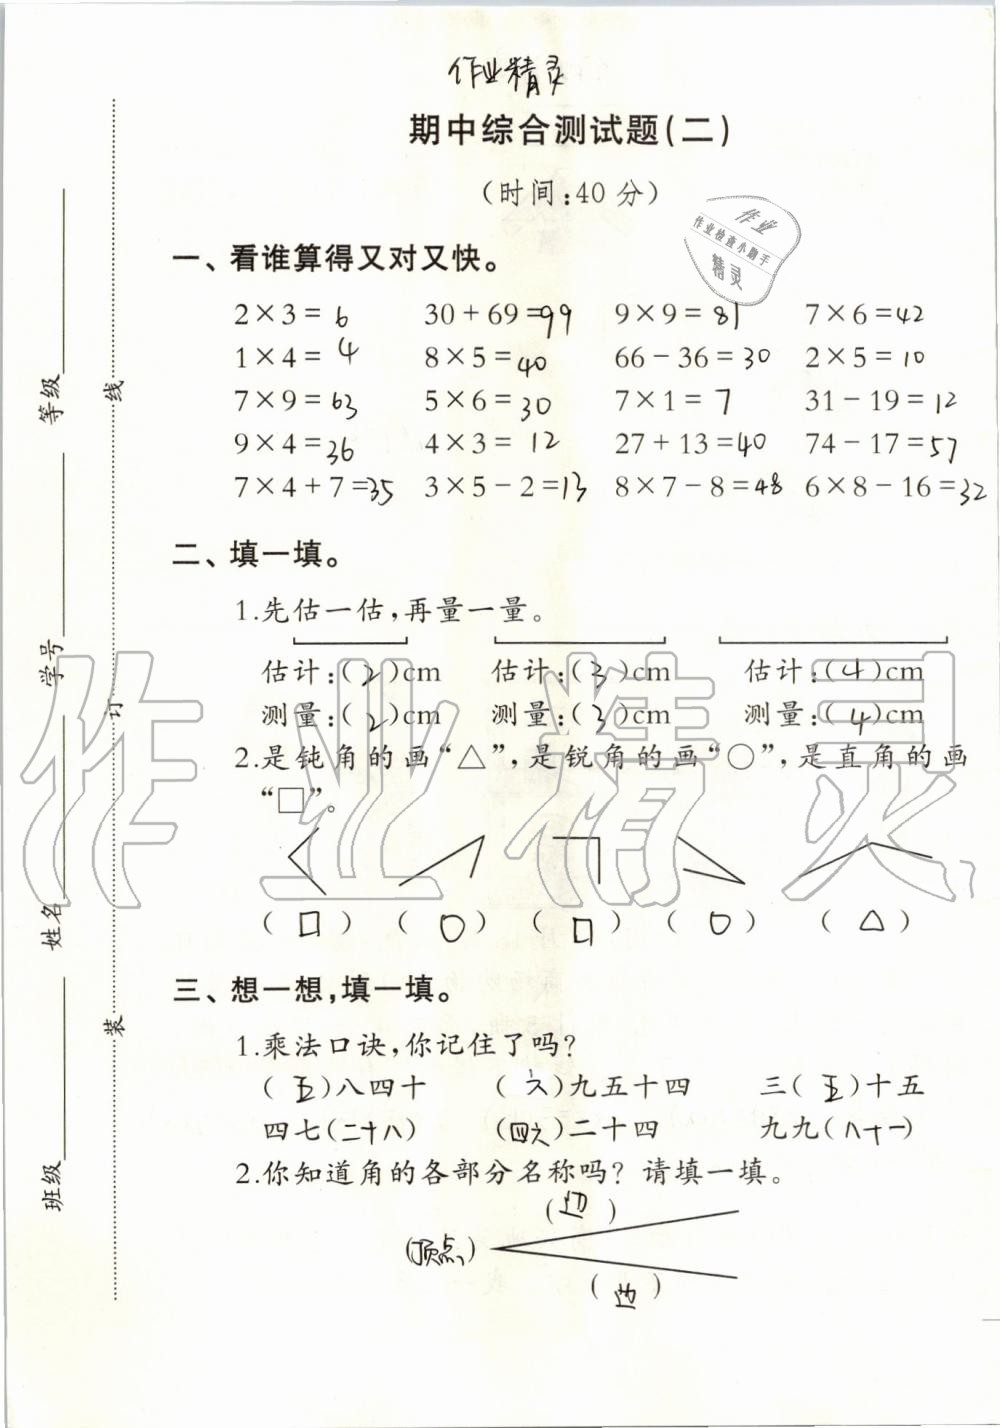 作业精灵
期中综合测试题(二)
(时间:40分)
作业
作业检查小助手
精灵
一、看谁算得又对又快。
2×3=6 30+69=99 9×9=81 7×6=42
1×4=4 8×5=40 66-36=30 2×5=10
7×9=63 5×6=30 7×1=7 31-19=12
9×4=36 4×3=12 27+13=40 74-17=57
7×4+7=35 3×5-2=13 8×7-8=48 6×8-16=32
二、填一填。
1.先估一估,再量一量。
估计:(2)cm 估计:(3)cm 估计:(4)cm
测量:(2)cm 测量:(3)cm 测量:(4)cm
2.是钝角的画“△”,是锐角的画“○”,是直角的画
“□”。
(□) (○) (□) (○) (△)
三、想一想,填一填。
1.乘法口诀,你记住了吗?
(五)八四十 (六)九五十四 三(五)十五
四七(二十八) (四六)二十四 九九(八十一)
2.你知道角的各部分名称吗? 请填一填。
(边)
(顶点)
(边)
班级 姓名 学号 等级
装 订 线
作业精灵